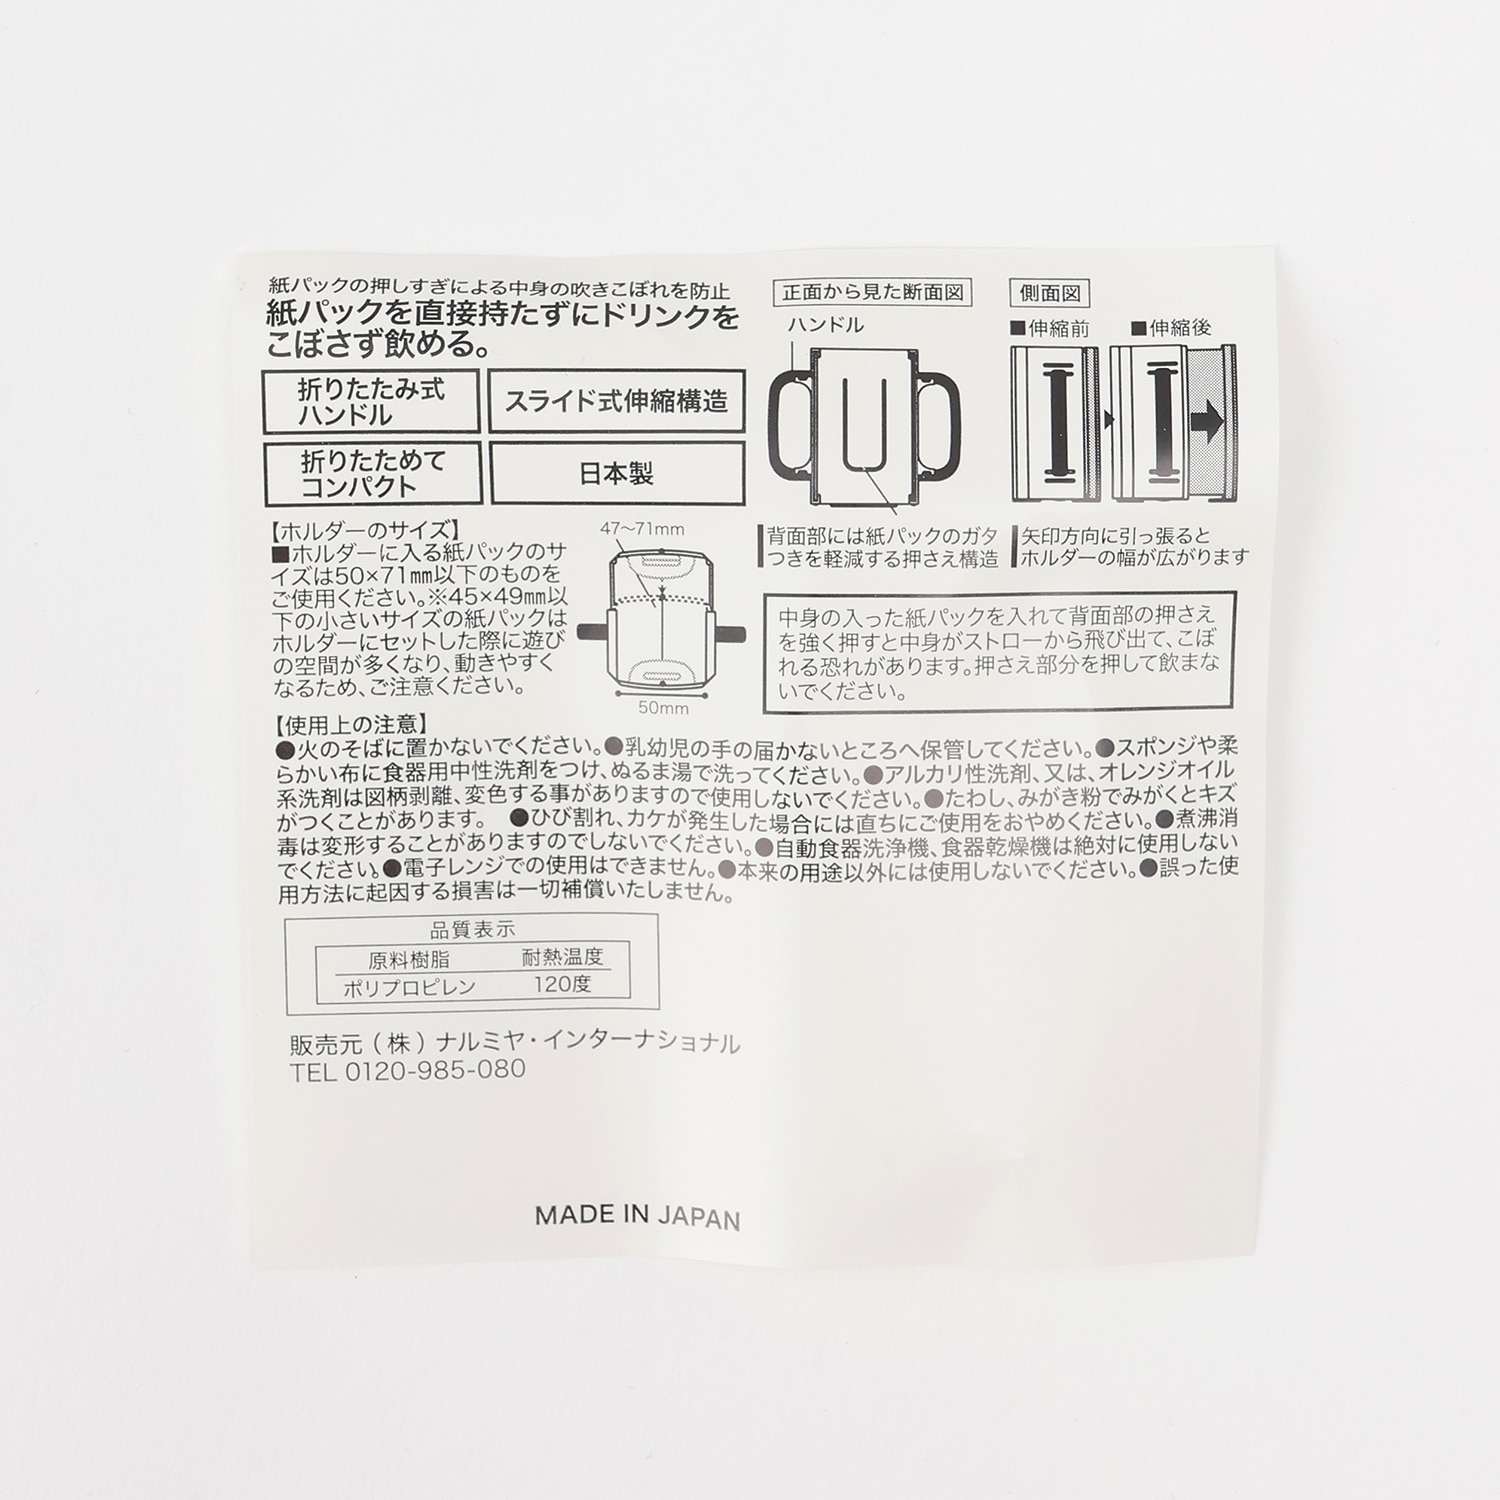 紙パックの押しすぎによる中身の吹きこぼれを防止
紙パックを直接持たずにドリンクを
こぼさず飲める。
折りたたみ式
ハンドル
スライド式伸縮構造
折りたためて
コンパクト
日本製
【ホルダーのサイズ】
■ホルダーに入る紙パックのサ
イズは50×71㎜以下のものを
ご使用ください。※45×49㎜以
下の小さいサイズの紙パックは
ホルダーにセットした際に遊び
の空間が多くなり、動きやすく
なるため、ご注意ください。
47～71mm
50mm
正面から見た断面図
ハンドル
背面部には紙パックのガタ
つきを軽減する押さえ構造
側面図
■伸縮前
■伸縮後
矢印方向に引っ張ると
ホルダーの幅が広がります
中身の入った紙パックを入れて背面部の押さえ
を強く押すと中身がストローから飛び出て、こぼ
れる恐れがあります。押さえ部分を押して飲まな
いでください。
【使用上の注意】
●火のそばに置かないでください。●乳幼児の手の届かないところへ保管してください。●スポンジや柔
らかい布に食器用中性洗剤をつけ、ぬるま湯で洗ってください。●アルカリ性洗剤、又は、オレンジオイル
系洗剤は図柄剥離、変色する事がありますので使用しないでください。●たわし、みがき粉でみがくとキズ
がつくことがあります。 ●ひび割れ、カケが発生した場合には直ちにご使用をおやめください。●煮沸消
毒は変形することがありますのでしないでください。●自動食器洗浄機、食器乾燥機は絶対に使用しない
でください。●電子レンジでの使用はできません。●本来の用途以外には使用しないでください。●誤った使
用方法に起因する損害は一切補償いたしません。
品質表示
原料樹脂 耐熱温度
ポリプロピレン 120度
販売元（株）ナルミヤ・インターナショナル
TEL 0120-985-080
MADE IN JAPAN